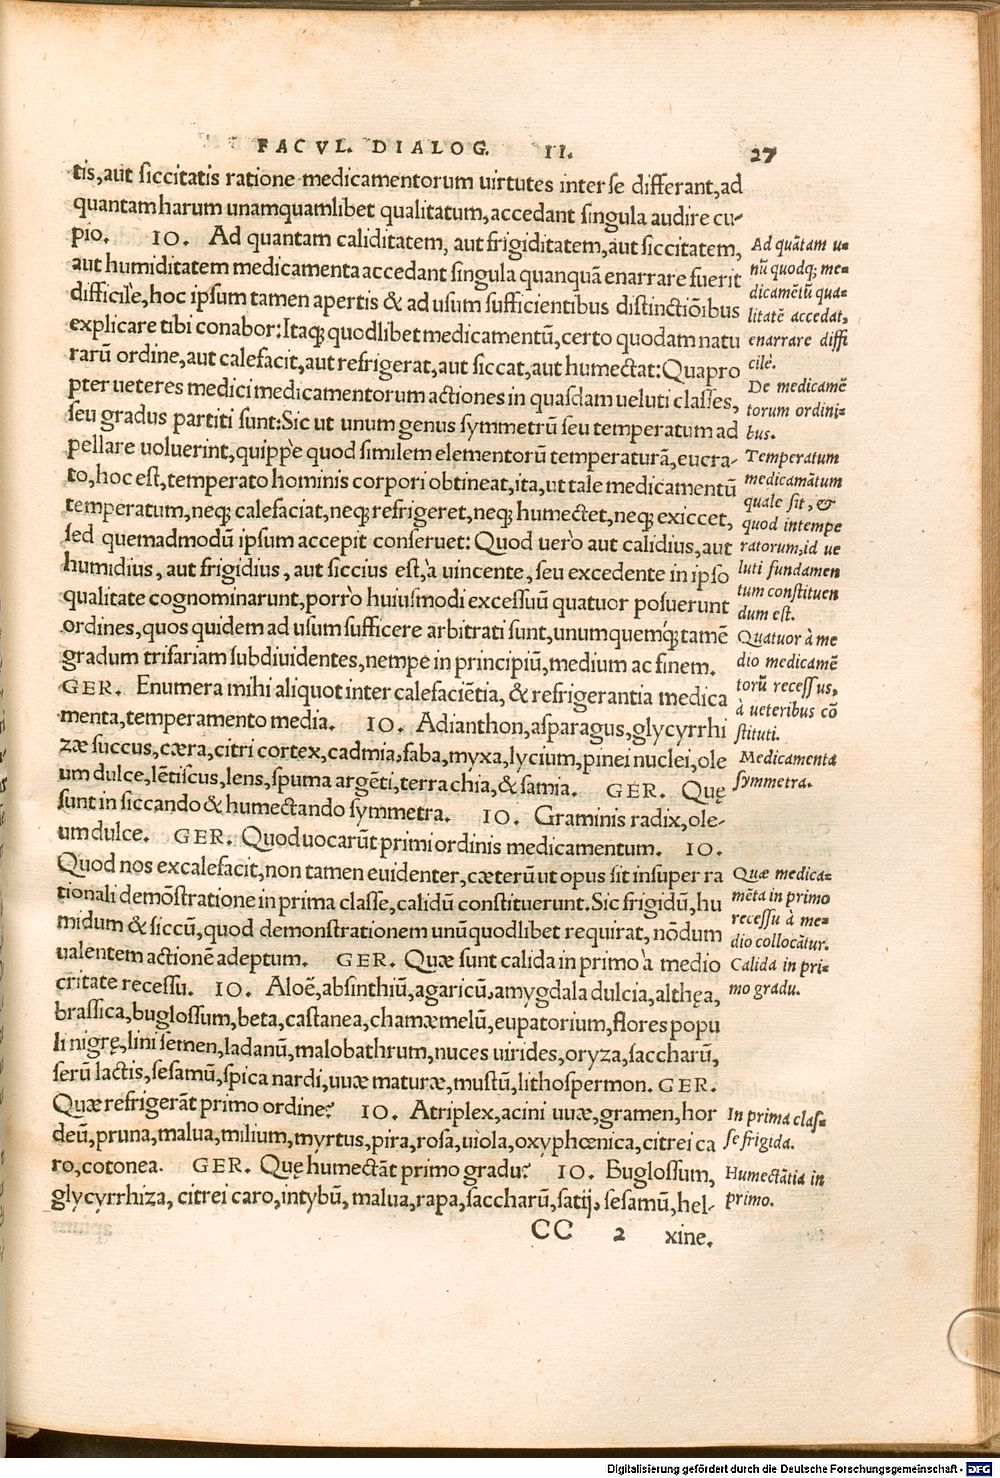 FACVL. DIALOG. II. 27
tis,aut siccitatis ratione medicamentorum uirtutes inter se differant,ad
quantam harum unamquamlibet qualitatum,accedant singula audire cu-
pio. IO. Ad quantam caliditatem, aut frigiditatem, aut siccitatem,
aut humiditatem medicamenta accedant singula quanquã enarrare fuerit
difficile, hoc ipsum tamen apertis & ad usum sufficientibus distinctiõibus
explicare tibi conabor: Itaq; quodlibet medicamentũ, certo quodam natu
rarũ ordine, aut calefacit, aut refrigerat, aut siccat, aut humectat: Quapro
pter ueteres medici medicamentorum actiones in quasdam ueluti classes,
seu gradus partiti sunt: Sic ut unum genus symmetrũ seu temperatum ad
pellare uoluerint, quippè quod similem elementorũ temperaturã, eucra-
to, hoc est, temperato hominis corpori obtineat, ita, ut tale medicamentũ
temperatum, neq; calefaciat, neq; refrigeret, neq; humectet, neq; exiccet,
sed quemadmodũ ipsum accepit conseruet: Quod uerò aut calidius, aut
humidius, aut frigidius, aut siccius est, à uincente, seu excedente in ipso
qualitate cognominarunt, porrò huiusmodi excessuũ quatuor posuerunt
ordines, quos quidem ad usum sufficere arbitrati sunt, unumquemq́; tamẽ
gradum trifariam subdiuidentes, nempe in principiũ, medium ac finem.
GER. Enumera mihi aliquot inter calefaciẽtia, & refrigerantia medica
menta, temperamento media. IO. Adianthon, asparagus, glycyrrhi
zæ succus, cæra, citri cortex, cadmia, faba, myxa, lycium, pinei nuclei, ole
um dulce, lẽtiscus, lens, spuma argẽti, terra chia, & samia. GER. Quę
sunt in siccando & humectando symmetra. IO. Graminis radix, ole-
um dulce. GER. Quod uocarũt primi ordinis medicamentum. IO.
Quod nos excalefacit, non tamen euidenter, cæterũ ut opus sit insuper ra
tionali demõstratione in prima classe, calidũ constituerunt. Sic frigidũ, hu
midum & siccũ, quod demonstrationem unũquodlibet requirat, nõdum
ualentem actionẽ adeptum. GER. Quæ sunt calida in primo à medio
critate recessu. IO. Aloẽ, absinthiũ, agaricũ, amygdala dulcia, althęa,
brassica, buglossum, beta, castanea, chamæmelũ, eupatorium, flores popu
li nigrę, lini semen, ladanũ, malobathrum, nuces uirides, oryza, saccharũ,
serũ lactis, sesamũ, spica nardi, uuæ maturæ, mustũ, lithospermon. GER.
Quæ refrigerãt primo ordine? IO. Atriplex, acini uuæ, gramen, hor
deũ, pruna, malua, milium, myrtus, pira, rosa, uiola, oxyphœnica, citrei ca
ro, cotonea. GER. Quę humectãt primo gradu? IO. Buglossum,
glycyrrhiza, citrei caro, intybũ, malua, rapa, saccharũ, satij, sesamũ, hel-
CC 2 xine.
Ad quãtam u-
nũ quodq; me-
dicamẽtũ qua-
litatẽ accedat,
enarrare diffi
cilè.
De medicamẽ
torum ordini-
bus.
Temperatum
medicamãtum
quale sit, &
quod intempe
ratorum, id ue
luti fundamen
tum constituen
dum est.
Quatuor à me
dio medicamẽ
torũ recessus,
à ueteribus cõ
stituti.
Medicamenta
symmetra.
Quæ medica-
mẽta in primo
recessu à me-
dio collocãtur.
Calida in pri-
mo gradu.
In prima clas-
se frigida.
Humectãtia in
primo.
Digitalisierung gefördert durch die Deutsche Forschungsgemeinschaft - DFG